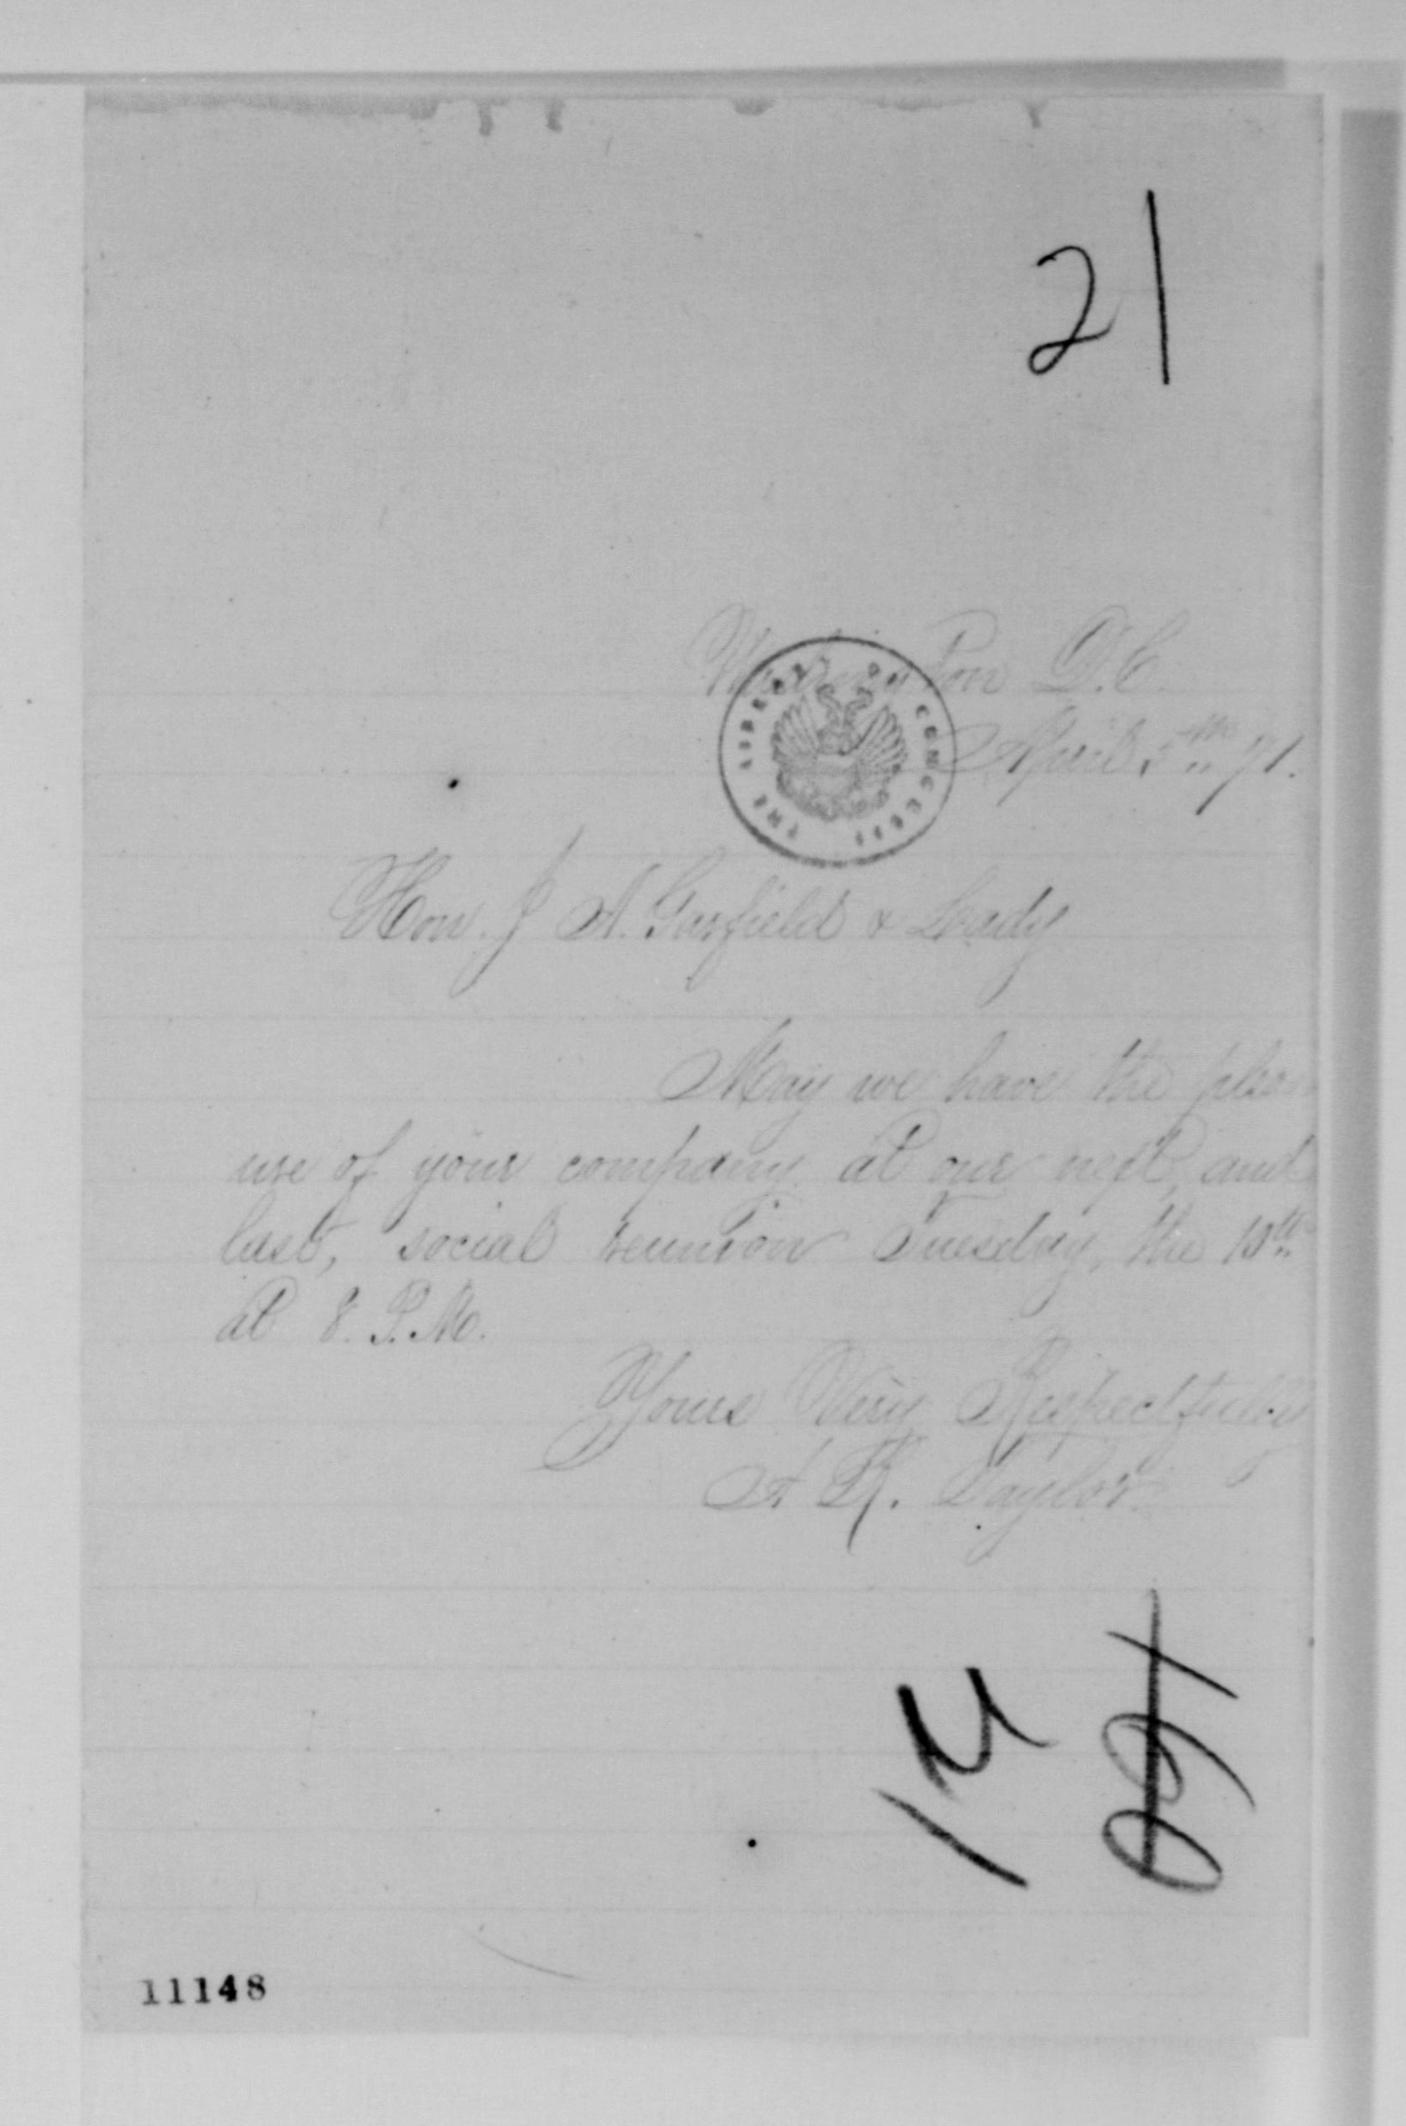 21
Washington D.C.
April 5th 71.
THE LIBRARY OF CONGRESS
Hon. J A. Garfield & Leady
May we have the pleas
ure of your company at our next, and
last, social reunion Tuesday, the 10th
at 8. P.M.
Yours Very Respectfully
A R. Taylor
12
11148